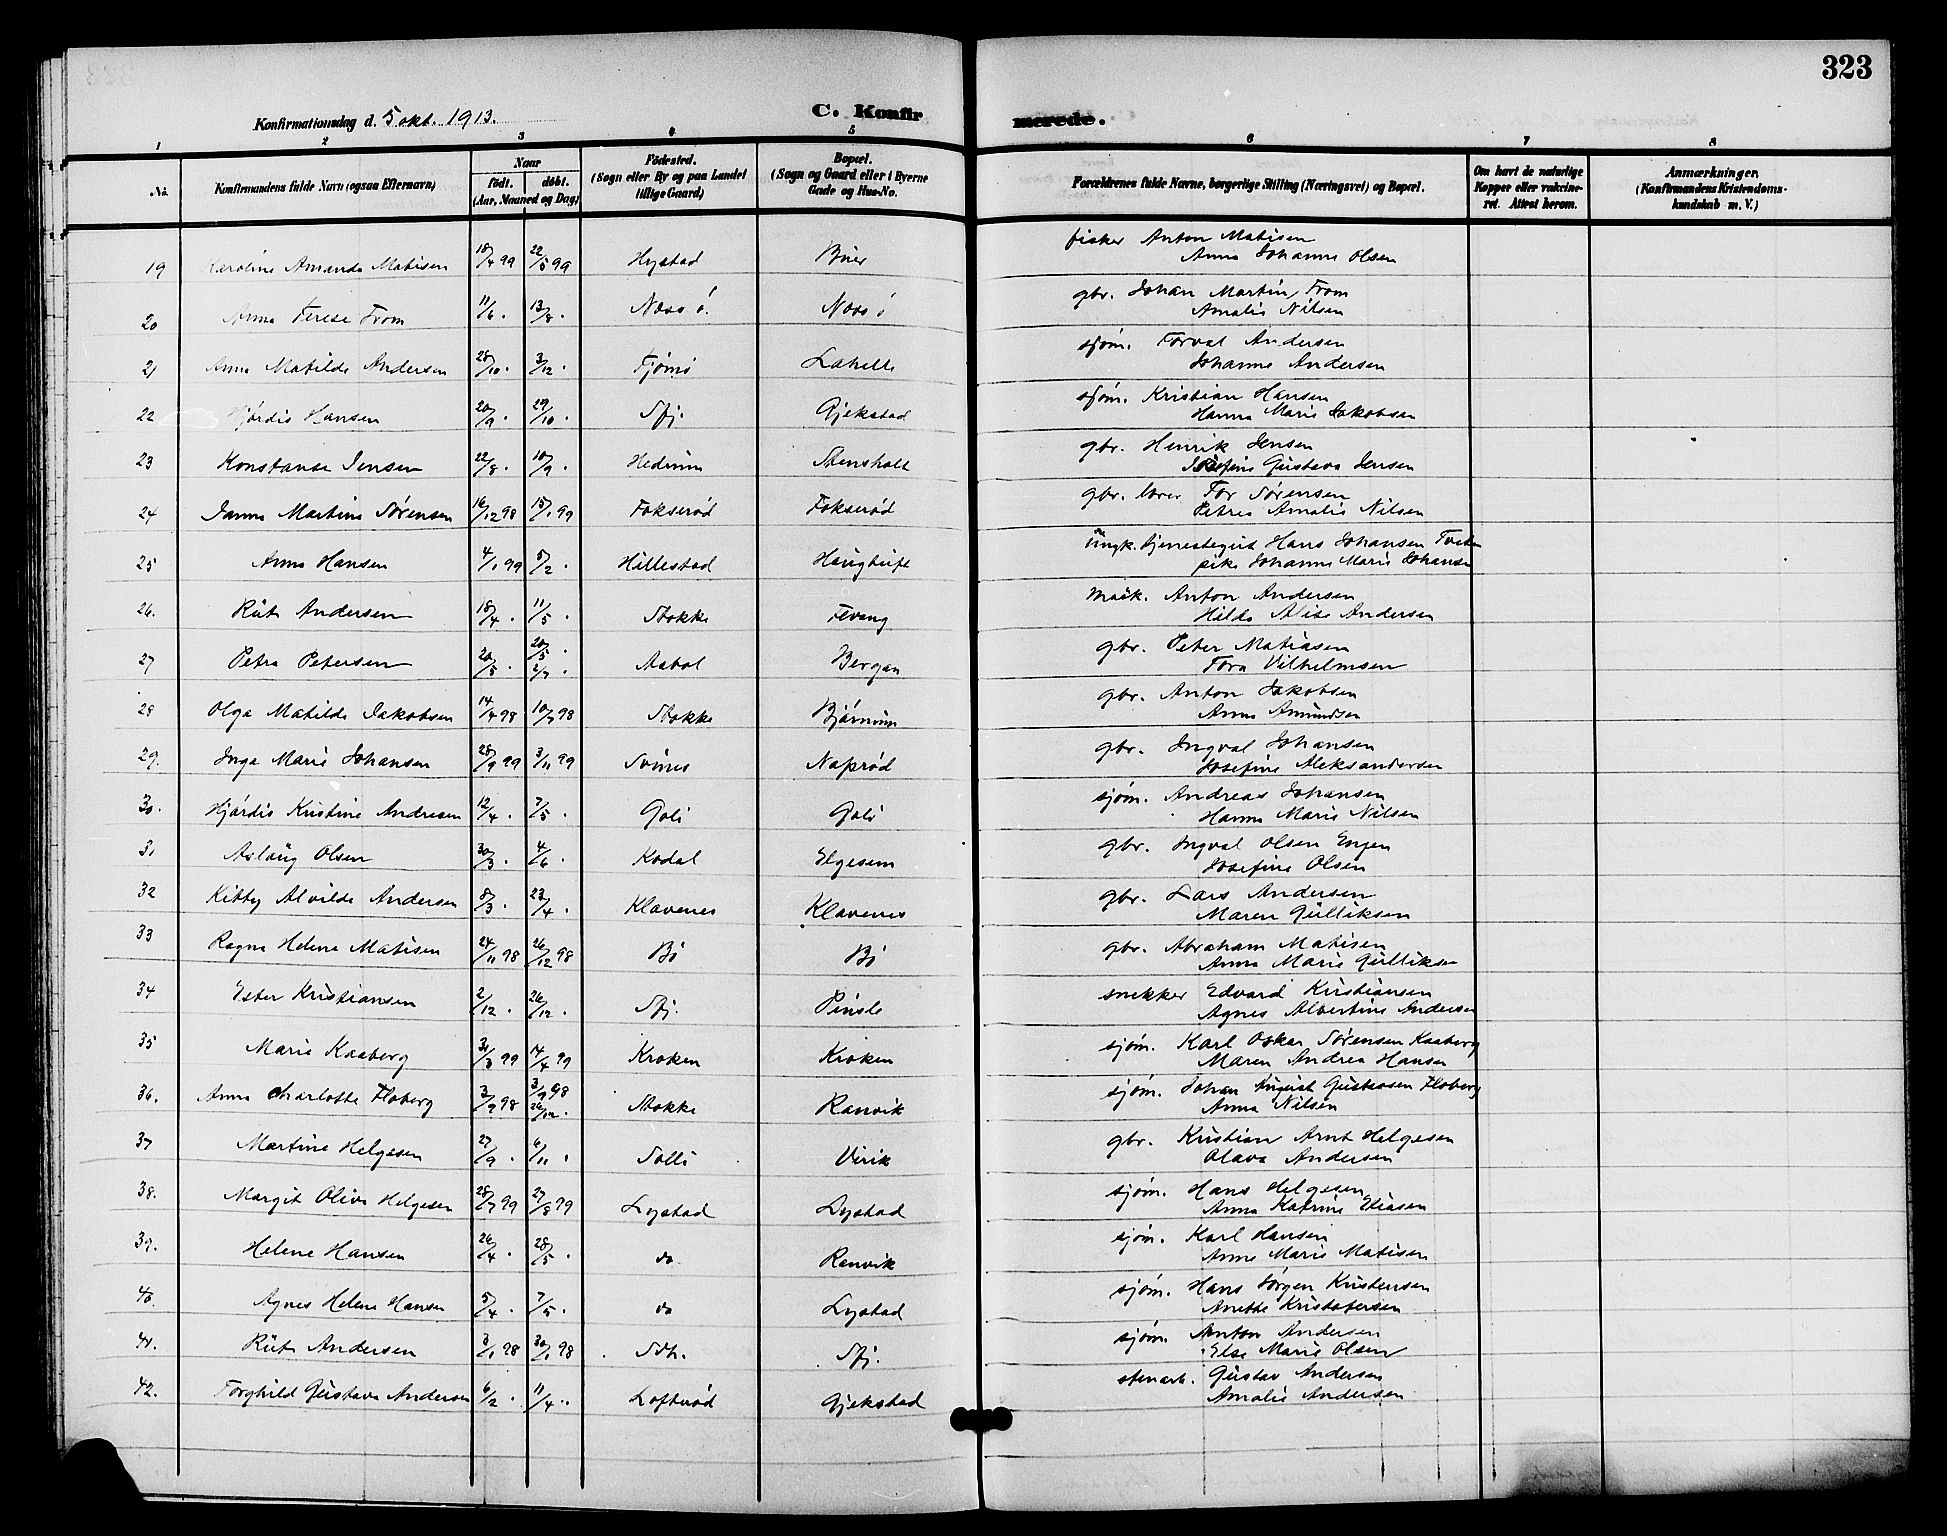 323
Konfirmationsdag d. 5 okt. 1913.
C. Konfirmerede.
1 2 3 4 5 6 7 8
No. Konfirmandens fulde Navn (ogsaa Efternavn) Naar født. døbt. (Aar, Maaned og Dag) Fødested. (Sogn eller By og paa Landet tillige Gaard) Bopæl. (Sogn og Gaard eller i Byerne Gade og Hus-No. Forældrenes fulde Navne, borgerlige Stilling (Næringsvei) og Bopæl. Om havt de naturlige Kopper eller vakcineret. Attest herom. Anmærkninger. (Konfirmandens Kristendomskundskab m. V.)
19 Karoline Amanda Matisen 18/4 99 22/5 99 Hystad Buer fisker Anton Matisen
Anna Johanne Olsen
20 Anna Terese From 11/6 . 13/8 . Nøsø. Nøsø gbr. Johan Martin From
Amalie Nilsen
21 Anna Matilde Andersen 28/10 . 3/12 . Tjømø Lahelle sjøm. Torval Andersen
Johanne Andersen
22 Hjørdis Hansen 20/9 . 29/10 . Sfj. Gjekstad sjøm. Kristian Hansen
Hanna Marie Jakobsen
23 Konstanse Jensen 22/8 . 10/9 . Hedrum Stensholt gbr. Henrik Jensen
Josefine Gustava Jensen
24 Janna Martine Sørensen 16/12 98 15/1 99 Fokserød Fokserød gbr. lærer Tor Sørensen
Petrea Amalie Nilsen
25 Anna Hansen 4/1 99 5/2 . Hillestad Haugtuft ungk. tjenestegut Hans Johansen Tveten
pike Johanne Marie Johansen
26. Rut Andersen 18/4 . 11/5 . Stokke Tevang mask. Anton Andersen
Hilda Alise Andersen
27 Petra Petersen 20/5 . 20/5 . 2/7 . Aabol Bergan gbr. Peter Matiasen
Tora Vilhelmsen
28 Olga Matilde Jakobsen 14/4 98 10/7 98 Stokke Bjørnum gbr. Anton Jakobsen
Anna Amundsen
29. Inga Marie Johansen 28/9 99 3/11 99 Tvines Naprød gbr. Ingval Johansen
Josefine Aleksandersen
30. Hjørdis Kristine Andresen 12/4 . 7/5 . Goli Goli sjøm. Andreas Johansen
Hanna Marie Nilsen
31 Aslaug Olsen 30/3 . 4/6 . Kodal Elgesem gbr. Ingval Olsen Engen
Josefine Olsen
32 Kitty Alvilde Andersen 8/3 . 23/4 . Klavenes Klavenes gbr. Lars Andersen
Maren Gulliksen
33 Ragna Helene Matisen 24/11 98 26/12 98 Bø Bø gbr. Abraham Matisen
Anna Marie Gulliksen
34 Ester Kristiansen 2/12 . 26/12 . Sfj. Pinsle snekker Edvard Kristiansen
Agnes Albertine Andersen
35 Marie Kaaberg 31/3 99 14/4 99 Kroken Kroken sjøm. Karl Oskar Sørensen Kaaberg
Maren Andrea Hansen
36. Anna Charlotte Floberg 3/9 98 3/9 98 26/12 . Stokke Ranvik sjøm. Johan August Gustavsen Floberg
Anna Nilsen
37 Martine Helgesen 27/9 . 6/11 . Solli Virik gbr. Kristian Arnt Helgesen
Olava Andersen
38. Margit Olive Helgesen 28/7 99 27/8 99 Lystad Lystad sjøm. Hans Helgesen
Anna Katrine Eliasen
39. Helene Hansen 26/4 . 28/5 . do Ranvik sjøm. Karl Hansen
Anne Marie Matisen
40. Agnes Helene Hansen 5/4 . 7/5 . do Lystad sjøm. Hans Jørgen Kristensen
Anette Kristofersen
41. Rut Andersen 3/1 98 30/1 98 Sdh. Sfj. sjøm. Anton Andersen
Else Marie Olsen
42. Torghild Gustava Andersen 6/2 . 11/4 . Lofterød Gjekstad stenarb. Gustav Andersen
Amalie Andersen